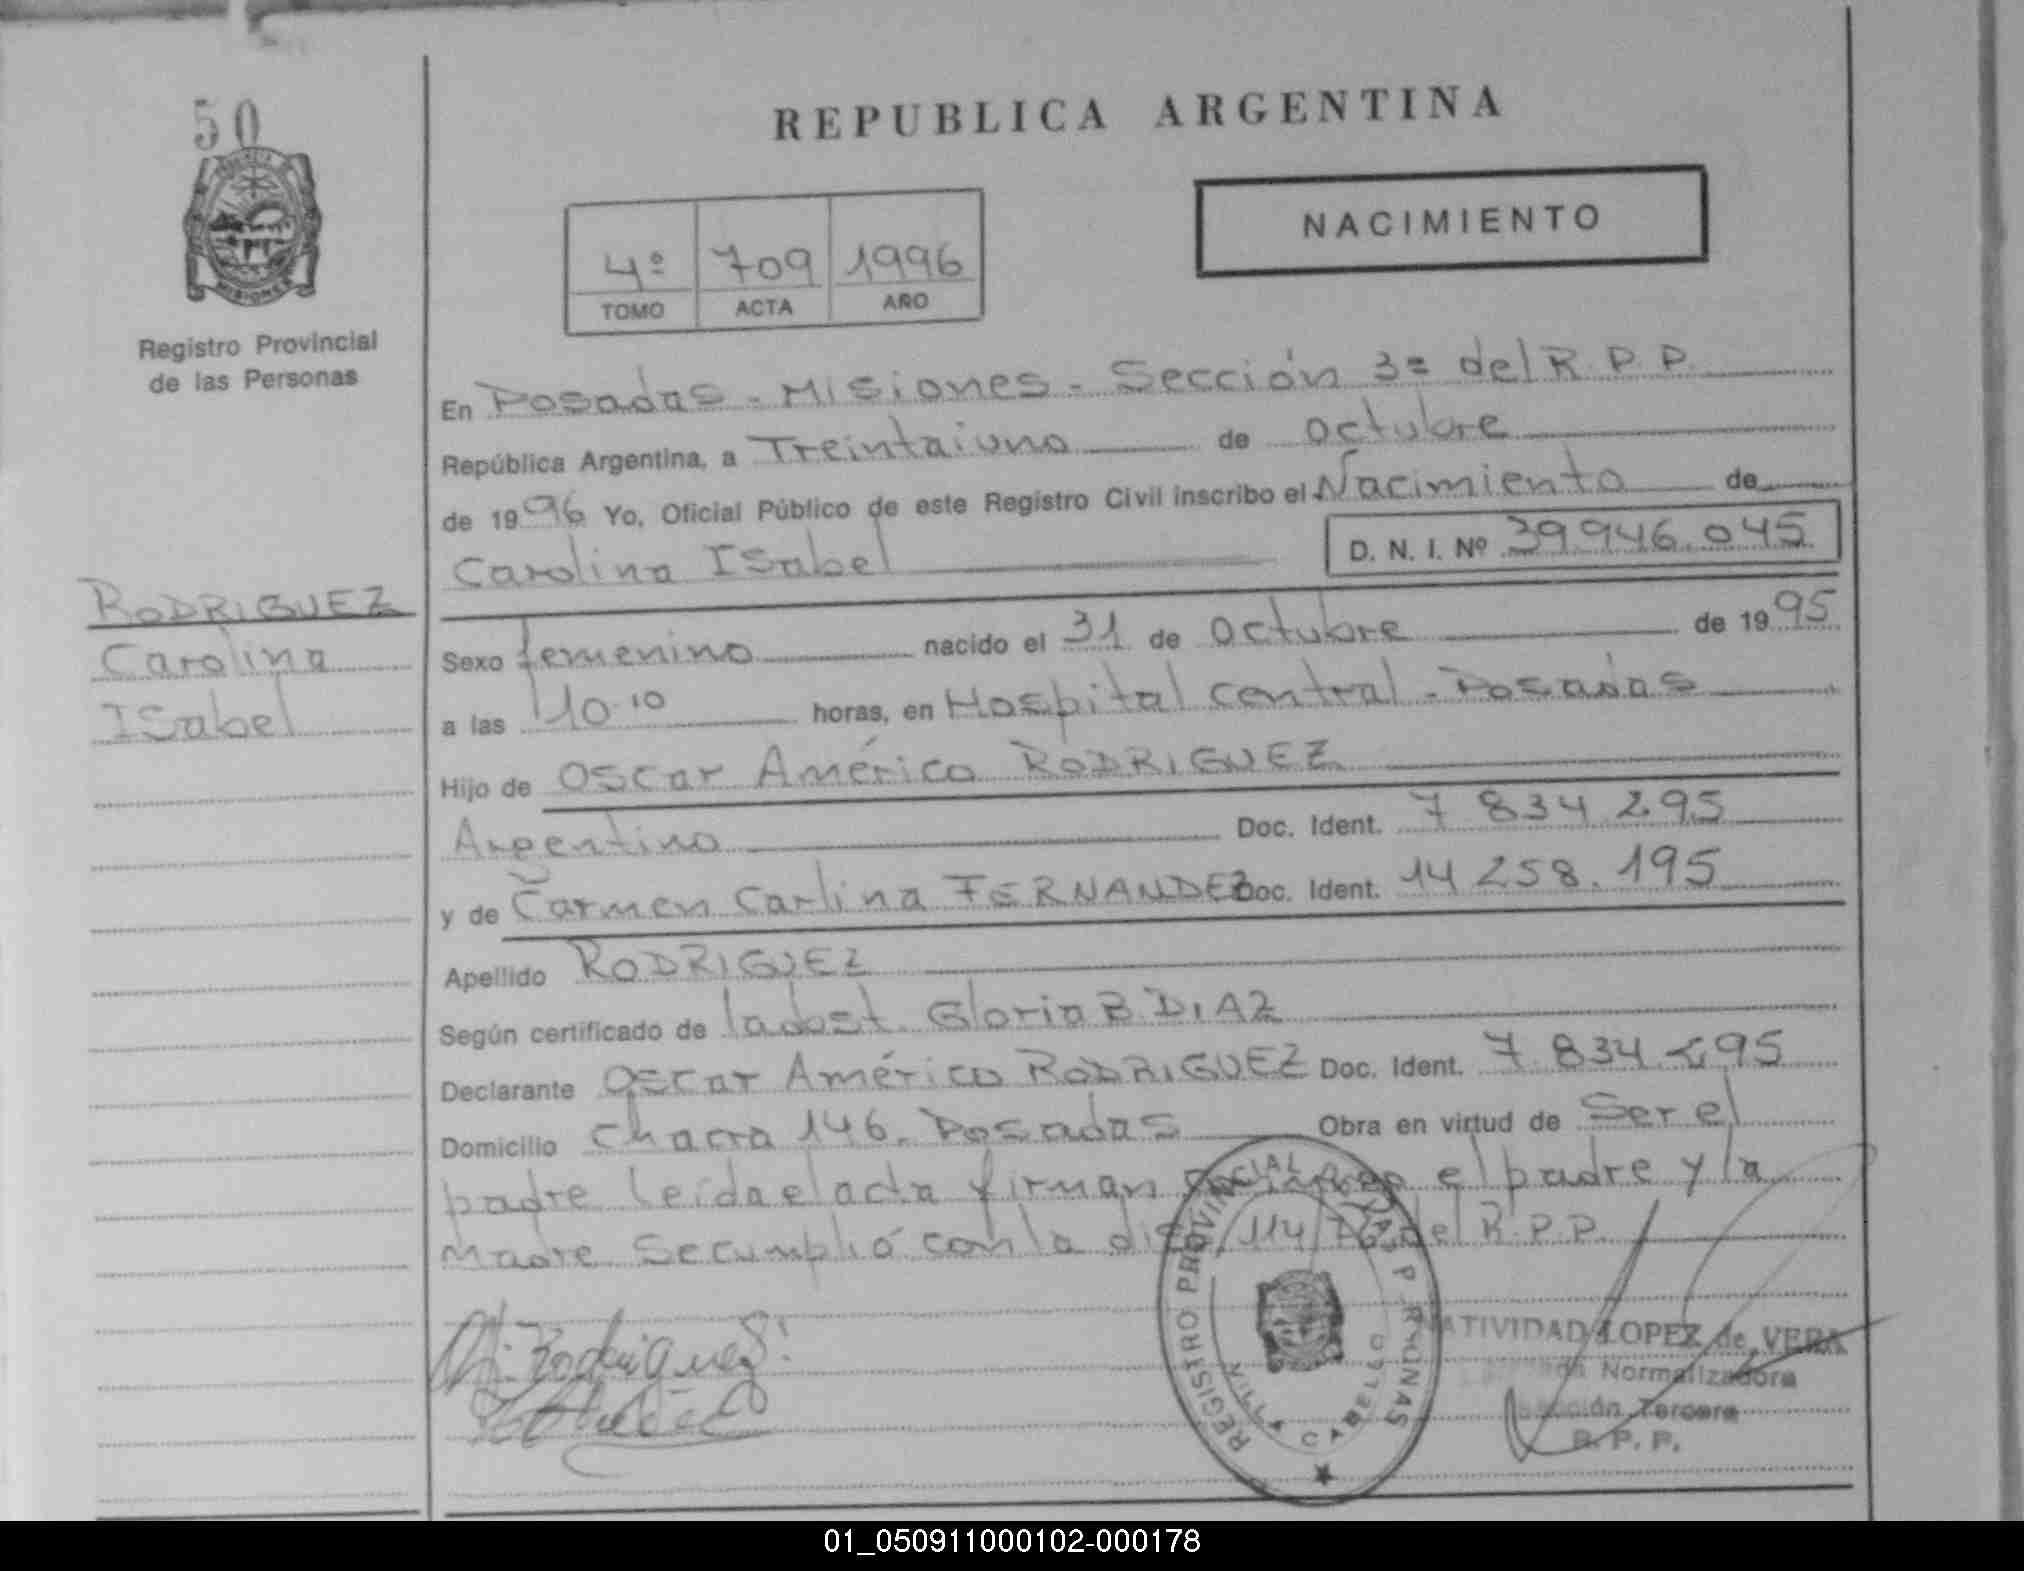 50
MISIONES
Registro Provincial
de las Personas
RODRIGUEZ
Carolina
ISabel
REPUBLICA ARGENTINA
NACIMIENTO
4º 709 1996
TOMO ACTA AÑO
En Posadas - Misiones - Sección 3ª del R.P.P.
República Argentina, a Treintaiuno de octubre
de 1996 Yo, Oficial Público de este Registro Civil inscribo el Nacimiento de
Carolina ISabel D. N. I. Nº 39.946.045
Sexo femenino nacido el 31 de octubre de 1995
a las 10.10 horas, en Hospital Central - Posadas
Hijo de Oscar Américo RODRIGUEZ
Argentino Doc. Ident. 7 834 295
y de Carmen Carlina FERNANDEZ Doc. Ident. 14 258.195
Apellido RODRIGUEZ
Según certificado de la obst. Gloria B. DIAZ
Declarante Oscar Américo RODRIGUEZ Doc. Ident. 7 834 295
Domicilio Chacra 146. Posadas Obra en virtud de Ser el
padre leida el acta firman el padre y la
Madre Se cumplió con la 114 del R.P.P.
Rodriguez
REGISTRO PROVINCIAL
CABELLO
NATIVIDAD LOPEZ de VERA
Normalizadora
Sección Tercera
R. P. P.
01_050911000102-000178